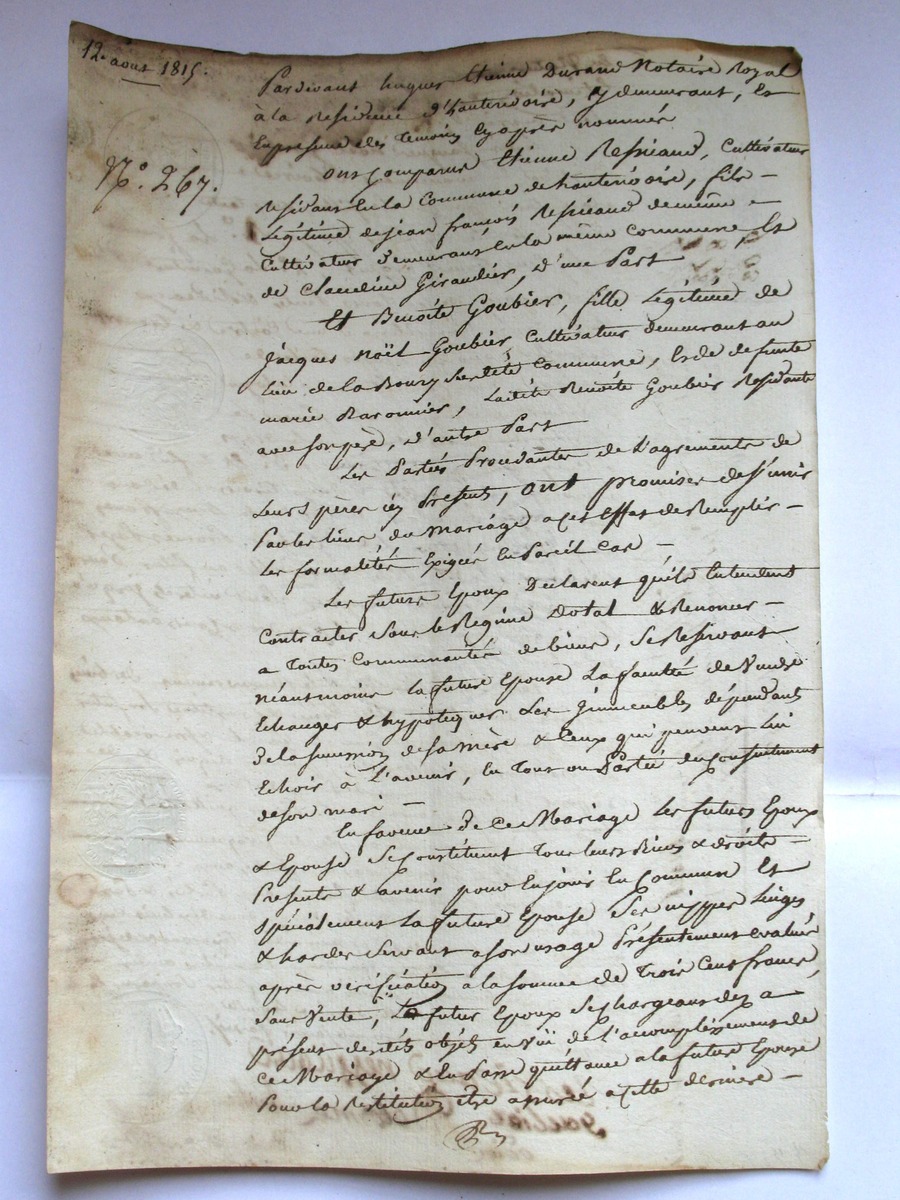 12. aout 1815.
N.° 267.
Pardevant hugues Etienne Durand Notaire Royal
à la Residence d'hauterivoire, y demeurant, Et
En presence des Temoins Cy après nommés
ont Comparus Etienne Ressicaud, Cultivateur
Residant En la Commune de hauterivoire, fils
Légitime de jean françois Ressicaud de même
Cultivateur demeurant En la même commune, Et
de Claudine Giraudier, d'une Part
Et Benoite Goubier, fille Légitime de
Jacques Noël Goubier Cultivateur demeurant au
lieu de la Boury Susdite Commune, Et de defunte
marie Baronnier, Ladite Benoite Goubier Residante
avec son père, d'autre Part
Les Parties Procedantes de l'agrements de
Leurs pères icy Present, ont promises de s'unir
Par les liens du Mariage a cet Effet de Remplir
les formalités Exigées En Pareil Cas
Les futurs Epoux Declarent qu'ils Entendent
Contracter Sous le Regime Dotal & Renoncer
a Toutes Communautés de biens, Se Reservant
Néantmoins la future Epouse La faculté de Vendre
Echanger & hypotequer Les Jmmeubles dépendants
de la succession de sa mère & Ceux qui peuvent lui
Echoir à L'avenir, En Tout ou Partie du Consentement
de son mari
En faveur de Ce Mariage Les futurs Epoux
& Epouse Se Constituent Tous leurs Biens & droits
Presents & avenir pour En jouir En Commun Et
Spécialement La future Epouse Ses nippes Linges
& hardes Servant a son usage Présentement évalués
après vérification a la somme de Trois Cent francs
Sans Vente, Le futur Epoux Se chargeant dez a
présent desdits objets En vüe de l'accomplissement de
Ce Mariage & En Passe quittance a la future Epouse
Pour la Restitution Etre assurée a Cette derniere